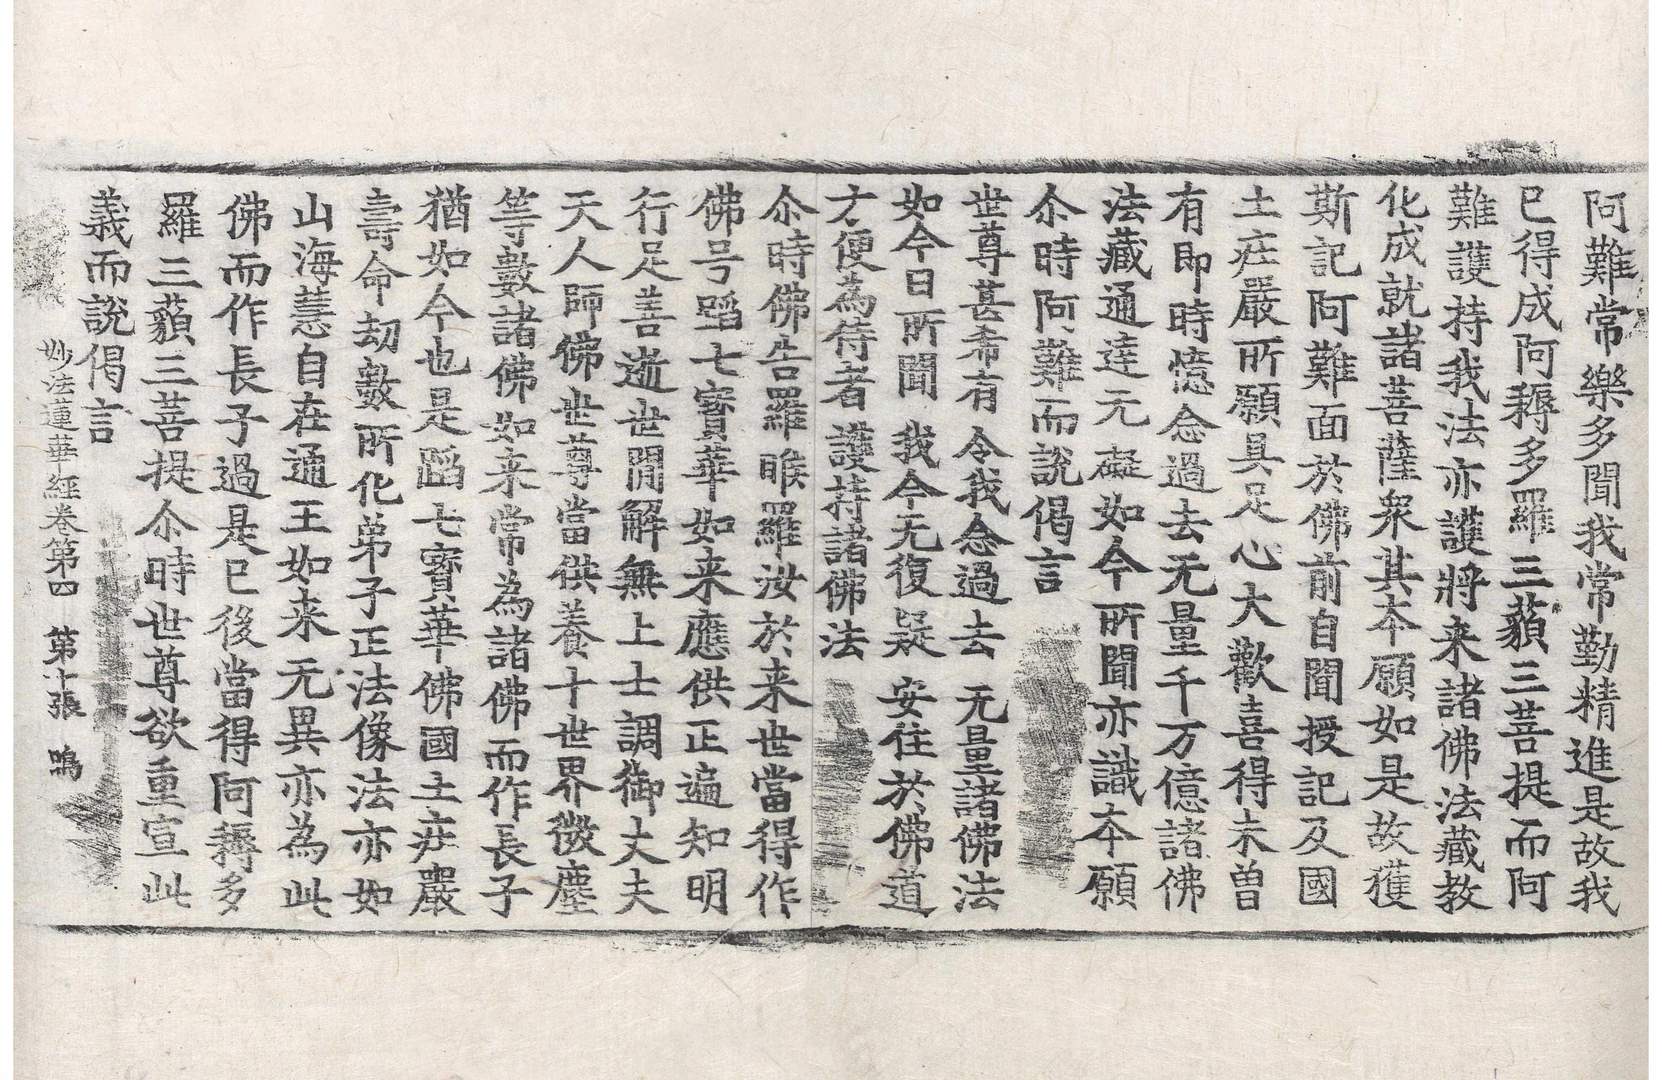 阿難常樂多聞我常勤精進是故我
已得成阿耨多羅三藐三菩提而阿
難護持我法亦護將来諸佛法藏教
化成就諸菩薩衆其夲願如是故獲
斯記阿難面於佛前自聞授記及國
土庄嚴所願具足心大歡喜得未曽
有即時憶念過去无量千万億諸佛
法藏通達无礙如今所聞亦識夲願
尒時阿難而說偈言
世尊甚希有 令我念過去 无量諸佛法
如今日所聞 我今无復疑 安住於佛道
方便為侍者 護持諸佛法
尒時佛告羅睺羅汝於来世當得作
佛号蹈七寳華如来應供正遍知明
行足善逝世間解無上士調御丈夫
天人師佛世尊當供養十世界微塵
等數諸佛如来常為諸佛而作長子
猶如今也是蹈七寳華佛國土庄嚴
壽命劫數所化弟子正法像法亦如
山海慧自在通王如来无異亦為此
佛而作長子過是已後當得阿耨多
羅三藐三菩提尒時世尊欲重宣此
義而說偈言
妙法蓮華經卷第四 第十張 鳴